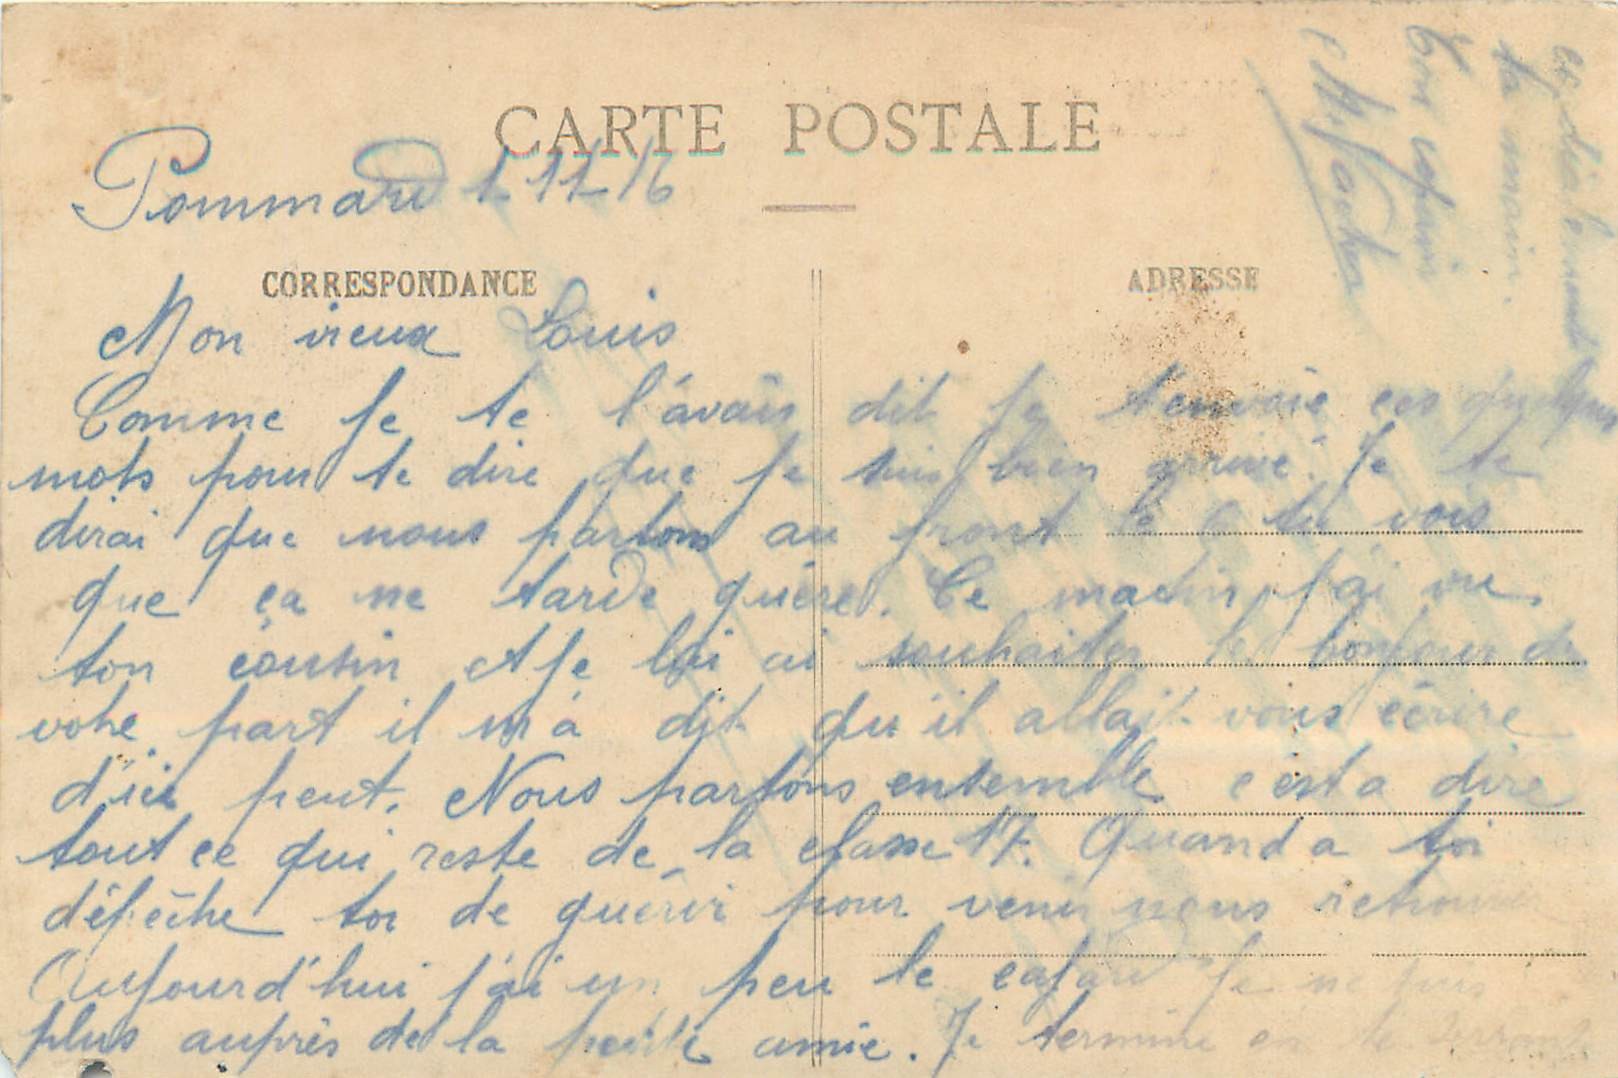 CARTE POSTALE
Pommard 1 11 16
CORRESPONDANCE
ADRESSE
Mon vieux Louis
Comme je te l'avais dit je t'envoie ces quelques
mots pour te dire que je suis bien arrivé. Je te
dirai que nous partons au front le 6 tu vois
que ça ne tarde guère. Ce matin j'ai vu
ton cousin et je lui ai souhaiter le bonjour de
votre part il m'a dit qu'il allait vous écrire
d'ici peut. Nous partons ensemble c'est a dire
tout ce qui reste de la classe 17. Quand a toi
dépêche toi de guérir pour venir nous retrouver
Aujourd'hui j'ai un peu le cafard Je ne suis
plus auprès de la petite amie. Je termine en te serrant
cordialement
la main.
Ton copain